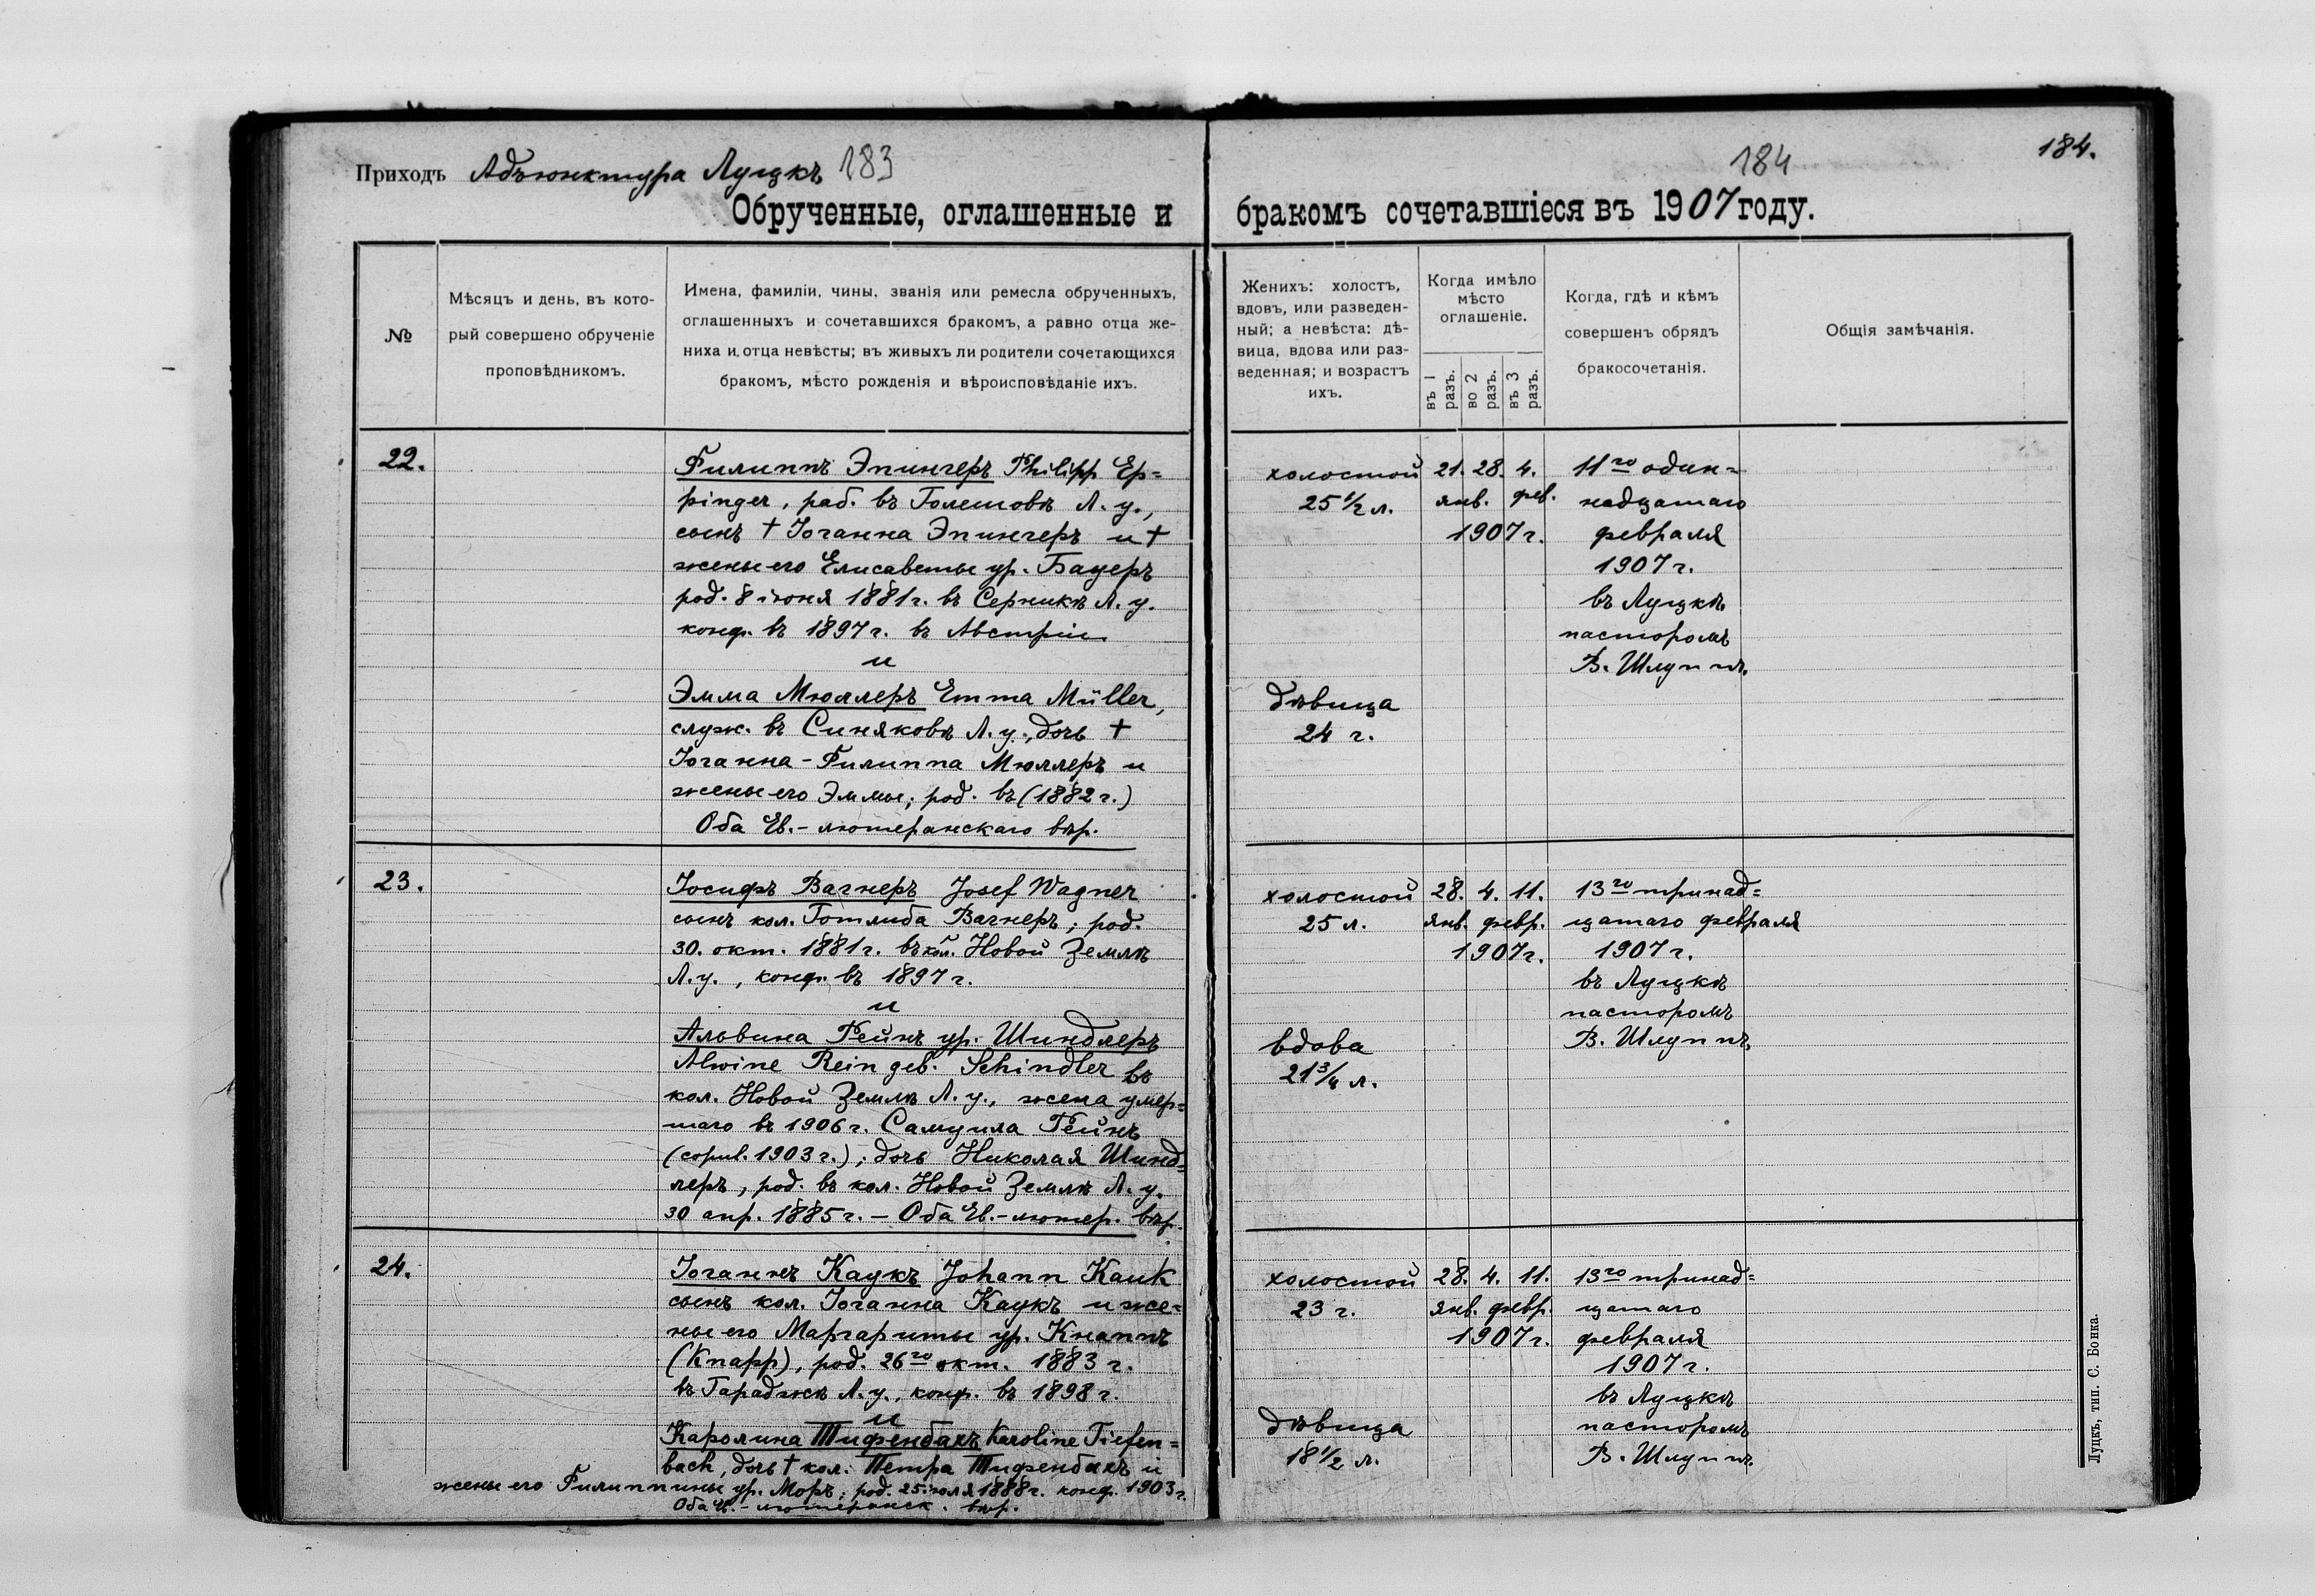 Приходъ Адъюнктура Луцкъ 183
Обрученные, оглашенные и
№
Мѣсяцъ и день, въ кото-
рый совершено обрученіе
проповѣдникомъ.
Имена, фамиліи, чины, званія или ремесла обрученныхъ,
оглашенныхъ и сочетавшихся бракомъ, а равно отца же-
ниха и отца невѣсты; въ живыхъ ли родители сочетающихся
бракомъ, мѣсто рожденія и вѣроисповѣданіе ихъ.
22.
Филиппъ Эпингеръ Philipp Ep=
pinger, раб. въ Голешовѣ Л. у.,
сынъ † Іоганна Эпингеръ и †
жены его Елисаветы ур. Бауеръ
род. 8 іюня 1881 г. въ Серникѣ Л. у.
конф. въ 1897 г. въ Австріи
и
Эмма Мюллеръ Emma Müller,
служ. въ Синяковѣ Л. у., дочь †
Іоганна-Филиппа Мюллеръ и
жены его Эммы; род. въ (1882 г.)
Оба Ев.-лютеранскаго вѣр.
23.
Іосифъ Вагнеръ Josef Wagner
сынъ кол. Готлиба Вагнеръ; род.
30. окт. 1881 г. въ кол. Новой Землѣ
Л. у., конф. въ 1897 г.
и
Альвина Рейнъ ур. Шиндлеръ
Alwine Rein geb. Schindler въ
кол. Новой Землѣ Л. у., жена умер=
шаго въ 1906 г. Самуила Рейнъ
(сорив. 1903 г.); дочь Николая Шинд=
леръ, род. въ кол. Новой Землѣ Л. у.
30 апр. 1885 г. – Оба Ев.-лютер. вѣр.
24.
Іоганнъ Каукъ Johann Kauk
сынъ кол. Іоганна Каукъ и же=
ны его Маргариты ур. Кнаппъ
(Knapp), род. 26го окт. 1883 г.
въ Гараджѣ Л. у., конф. въ 1898 г.
и
Каролина Тифенбахъ Karoline Tiefen=
bach, дочь † кол. Петра Тифенбахъ и
жены его Филиппины ур. Моръ; род. 25 іюля 1888 г. конф. 1903 г.
Оба Ев.-лютеранск. вѣр.
184
184.
бракомъ сочетавшіеся въ 1907 году.
Женихъ: холостъ,
вдовъ, или разведен-
ный; а невѣста: дѣ-
вица, вдова или раз-
веденная; и возрастъ
ихъ.
Когда имѣло
мѣсто
оглашеніе.
въ 1 разъ.
во 2 разъ.
въ 3 разъ.
Когда, гдѣ и кѣмъ
совершенъ обрядъ
бракосочетанія.
Общія замѣчанія.
холостой
25 1/2 л.
21. 28. 4.
янв. фев.
1907 г.
11го один=
надцатаго
февраля
1907 г.
въ Луцкѣ
пасторомъ
В. Шлуппъ.
дѣвица
24 г.
холостой
25 л.
28. 4. 11.
янв. февр.
1907 г.
13го тринад=
цатаго февраля
1907 г.
въ Луцкѣ
пасторомъ
В. Шлуппъ.
вдова
21 3/4 л.
холостой
23 г.
28. 4. 11.
янв. февр.
1907 г.
13го тринад=
цатаго
февраля
1907 г.
въ Луцкѣ
пасторомъ
В. Шлуппъ.
дѣвица
18 1/2 л.
Луцкъ, тип. С. Бонка.